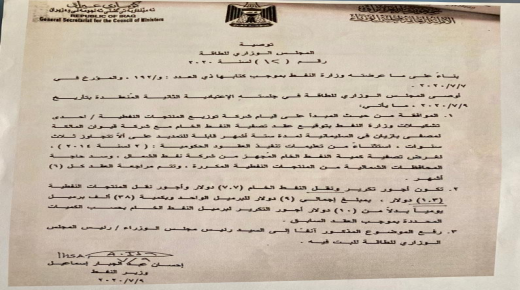 REPUBLIC OF IRAQ
General Secretariat for Council of Ministers
توصية
المجلس الوزاري للطاقة
رقم (١٢) لسنة ٢٠٢٠
بناءً على ما عرضته وزارة النفط بموجب كتابها ذي العدد و/١٩٢، والمؤرخ في
٢٠٢٠/٧/٧.
أوصى المجلس الوزاري للطاقة في جلسته الاعتيادية الثانية المنعقدة بتاريخ
٢٠٢٠/٧/٩، ما يأتي:
١. الموافقة من حيث المبدأ على قيام شركة توزيع المنتجات النفطية / احدى
تشكيلات وزارة النفط بتوقيع عقد تصفية النفط الخام مع شركة قيوان العالقة
لمصفى بازيان في السليمانية لمدة ستة أشهر قابلة للتمديد على ألا تتجاوز ثلاث
سنوات، استثناءً من تعليمات تنفيذ العقود الحكومية: (٢ لسنة ٢٠١٤)،
لغرض تصفية كمية النفط الخام المجهز من شركة نفط الشمال، وسد حاجة
المحافظات الشمالية من المنتجات النفطية المكررة، وتتم مراجعة العقد كل (٦)
أشهر.
٢. تكون أجور تكرير ونقل النفط الخام (٧.٧) دولار وأجور نقل المنتجات النفطية
(١.٣) دولار، بمبلغ إجمالي (٩) دولار للبرميل الواحد وبكمية (٣٨) ألف برميل
يومياً بدلاً من (١٠) دولار أجور التكرير لبرميل النفط الخام بحسب الكميات
المحددة بموجب العقد السابق.
٣. رفع الموضوع المذكور آنفاً إلى السيد رئيس مجلس الوزراء / رئيس المجلس
الوزاري للطاقة للبت فيه.
IHSA
إحسان عبد الجبار إسماعيل
وزير النفط
٢٠٢٠/٧/٩